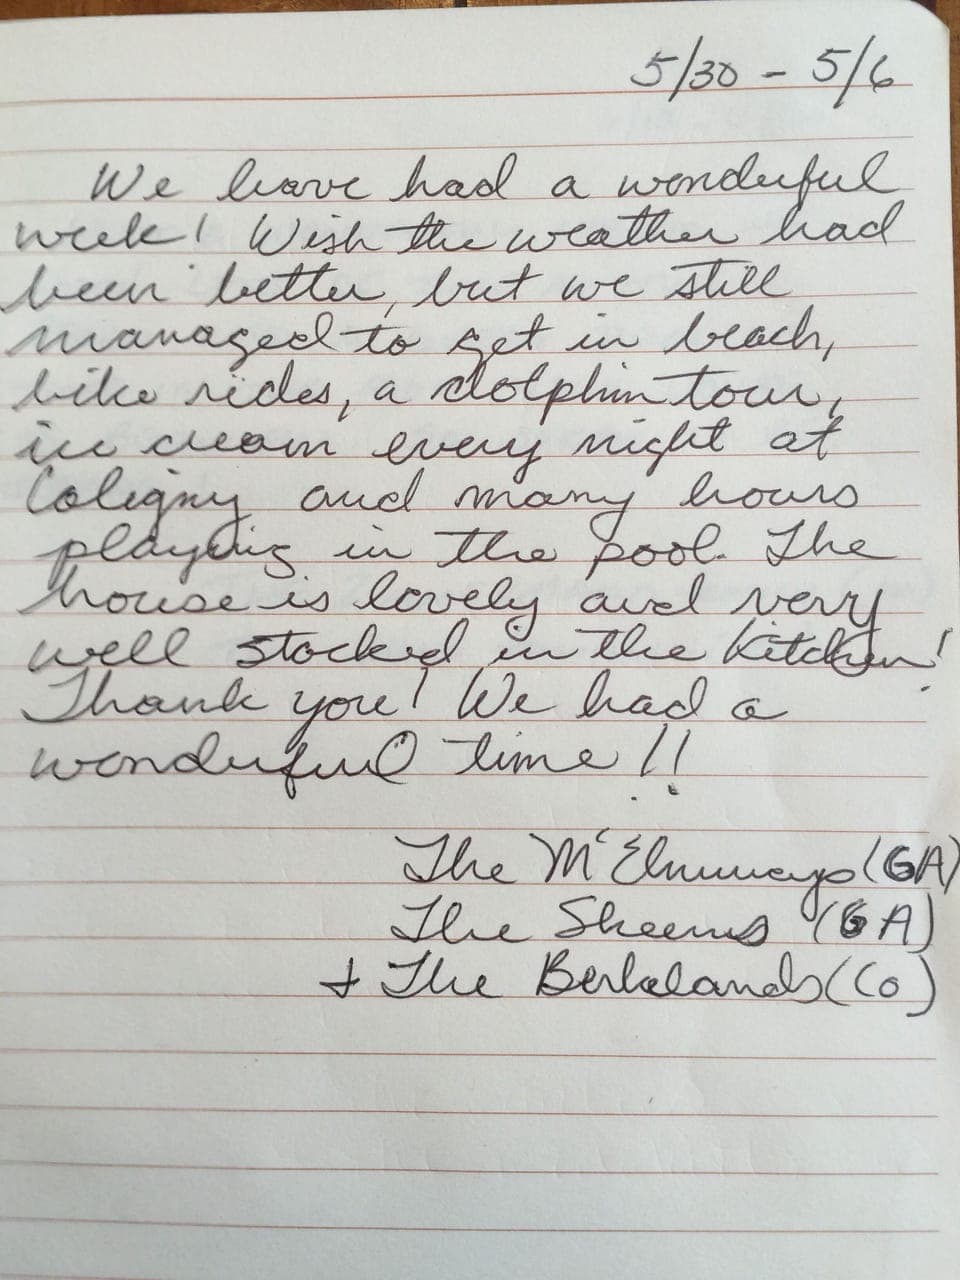 5/30 - 5/6
We have had a wonderful
week! Wish the weather had
been better, but we still
managed to get in beach,
bike rides, a dolphin tour,
ice cream every night at
Coligny and many hours
playing in the pool. The
house is lovely and very
well stocked in the kitchen!
Thank you! We had a
wonderful time!!
The (GA)
The Skeens (GA)
+ The Berkelands (CO)